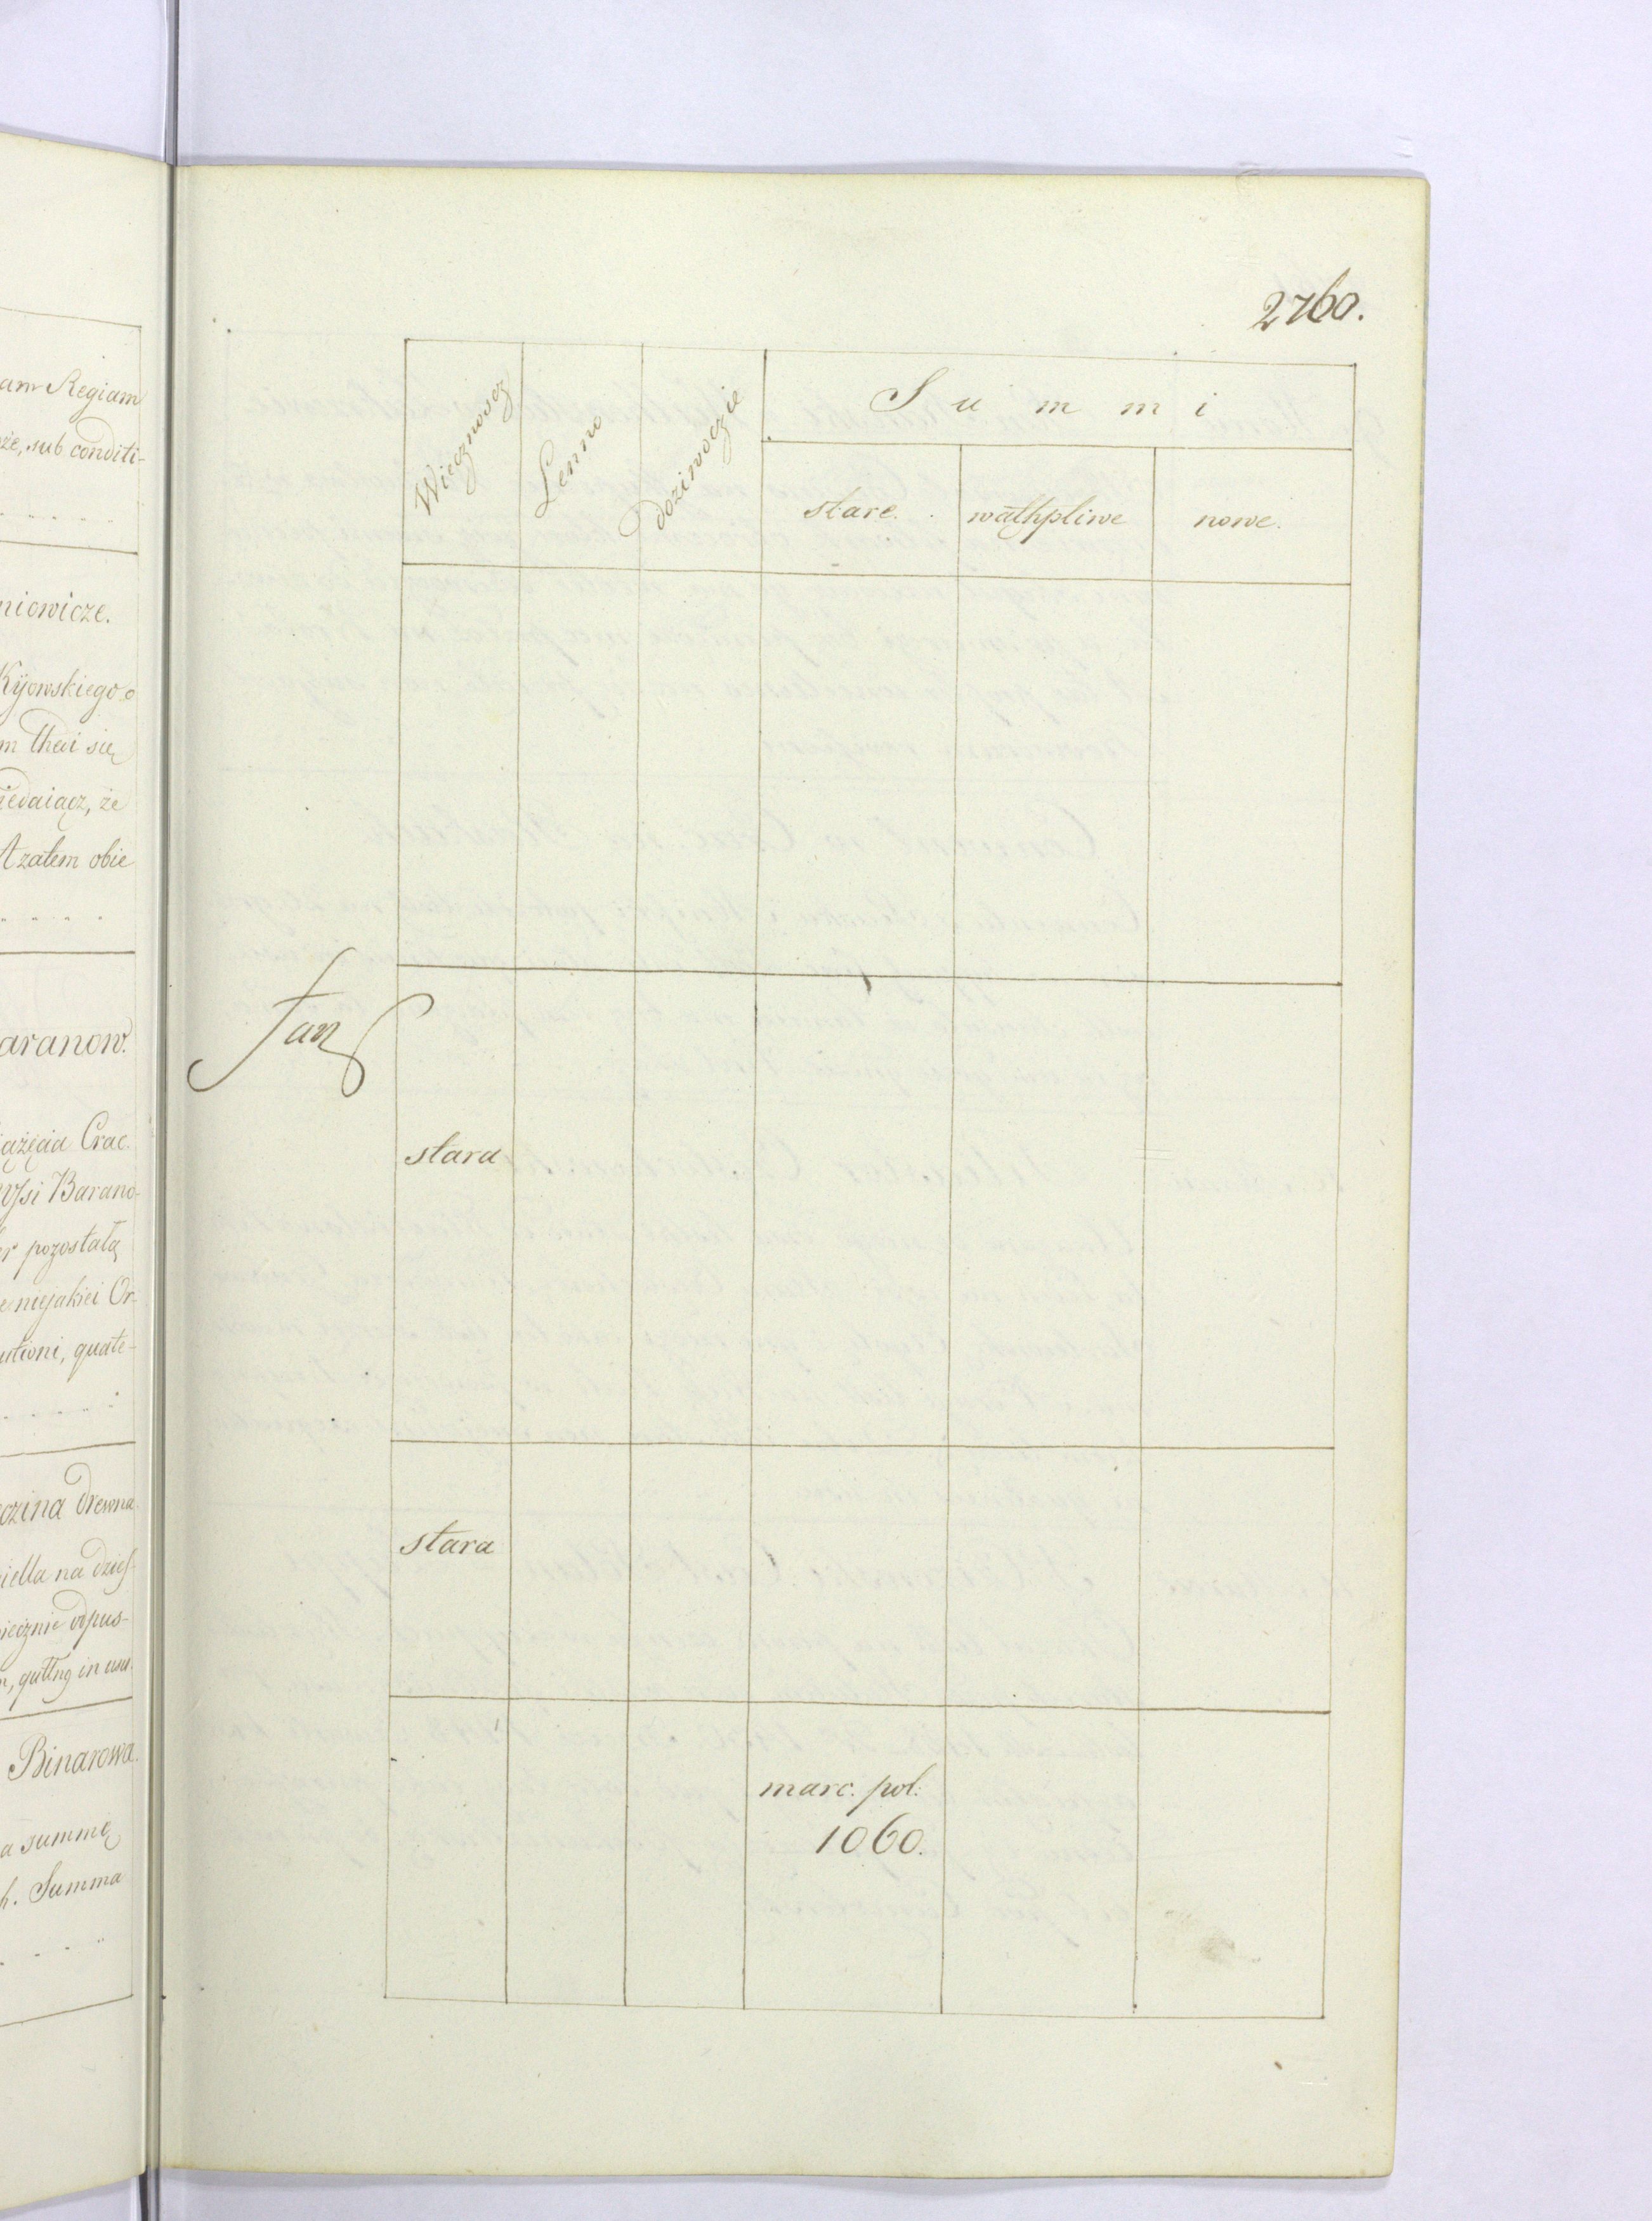 am Regiam
że, sub conditi-
niowicze.
Kijowskiego o
m thei się
iedaiącz, że
A zatem obie
aranow.
iążęcia Crac.
Wsi Barano-
er pozostałą
e niejakiei Or-
utioni, quate-
czina Drewna
iella na dzies-
iecznie odpus-
in usu
Binarowa.
a summę
h. Summa
2760.
Wiecznoscz
Lenno
Doziwoczie
Summi
stare.
wąthpliwe
nowe.
stara
stara
marc. pol:
1060.